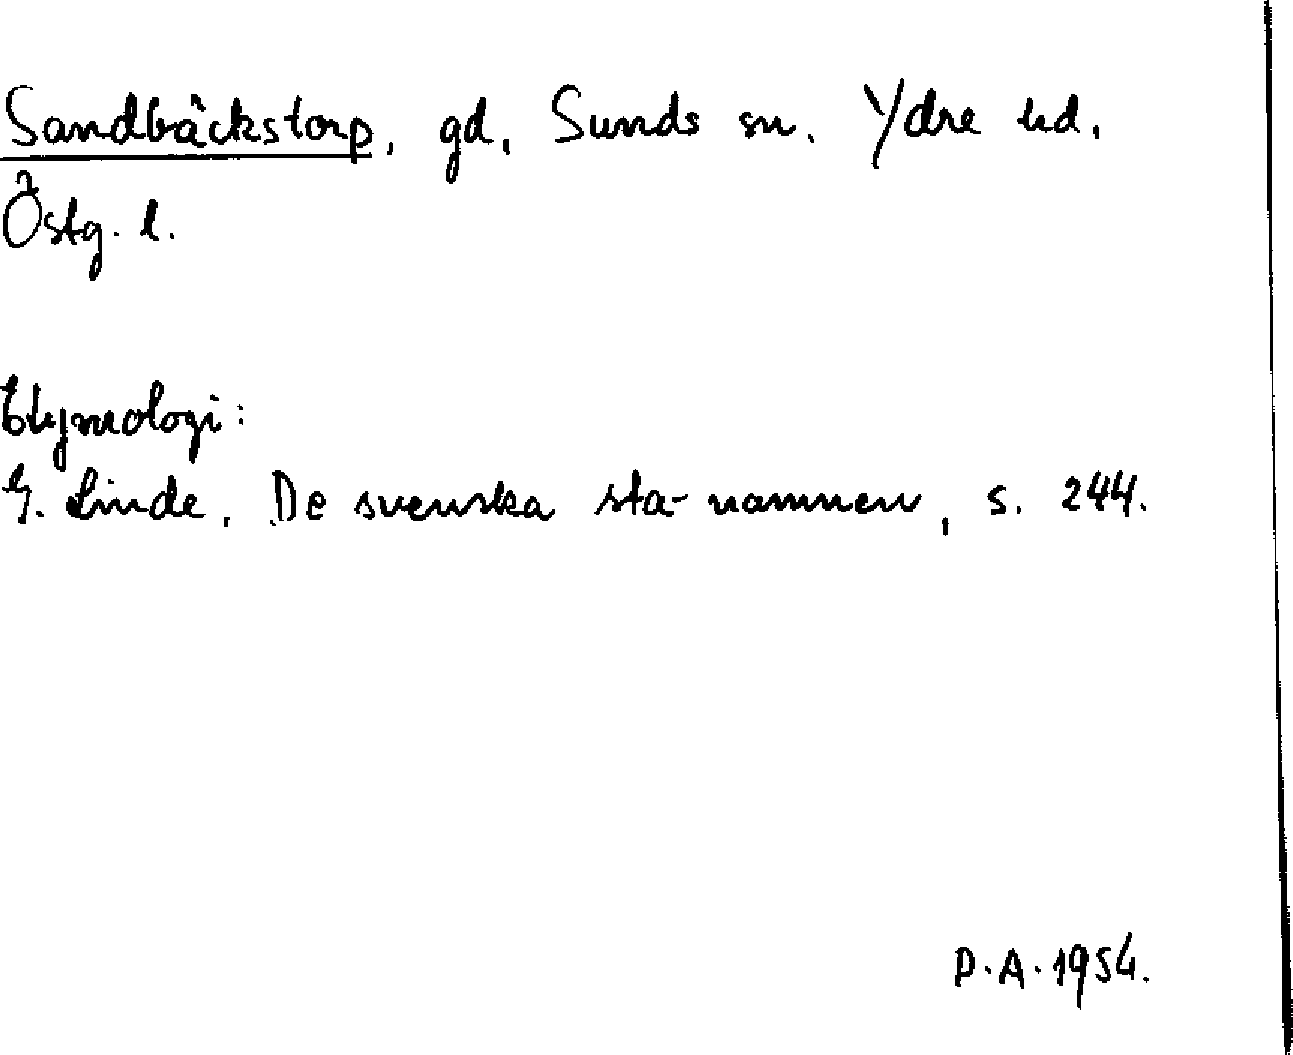 Sandbäckstorp, gd, Sunds sn. Ydre hd,
Östg. l.
Etymologi:
G. Linde, De svenska sta-namnen, s. 244.
P.A. 1954.